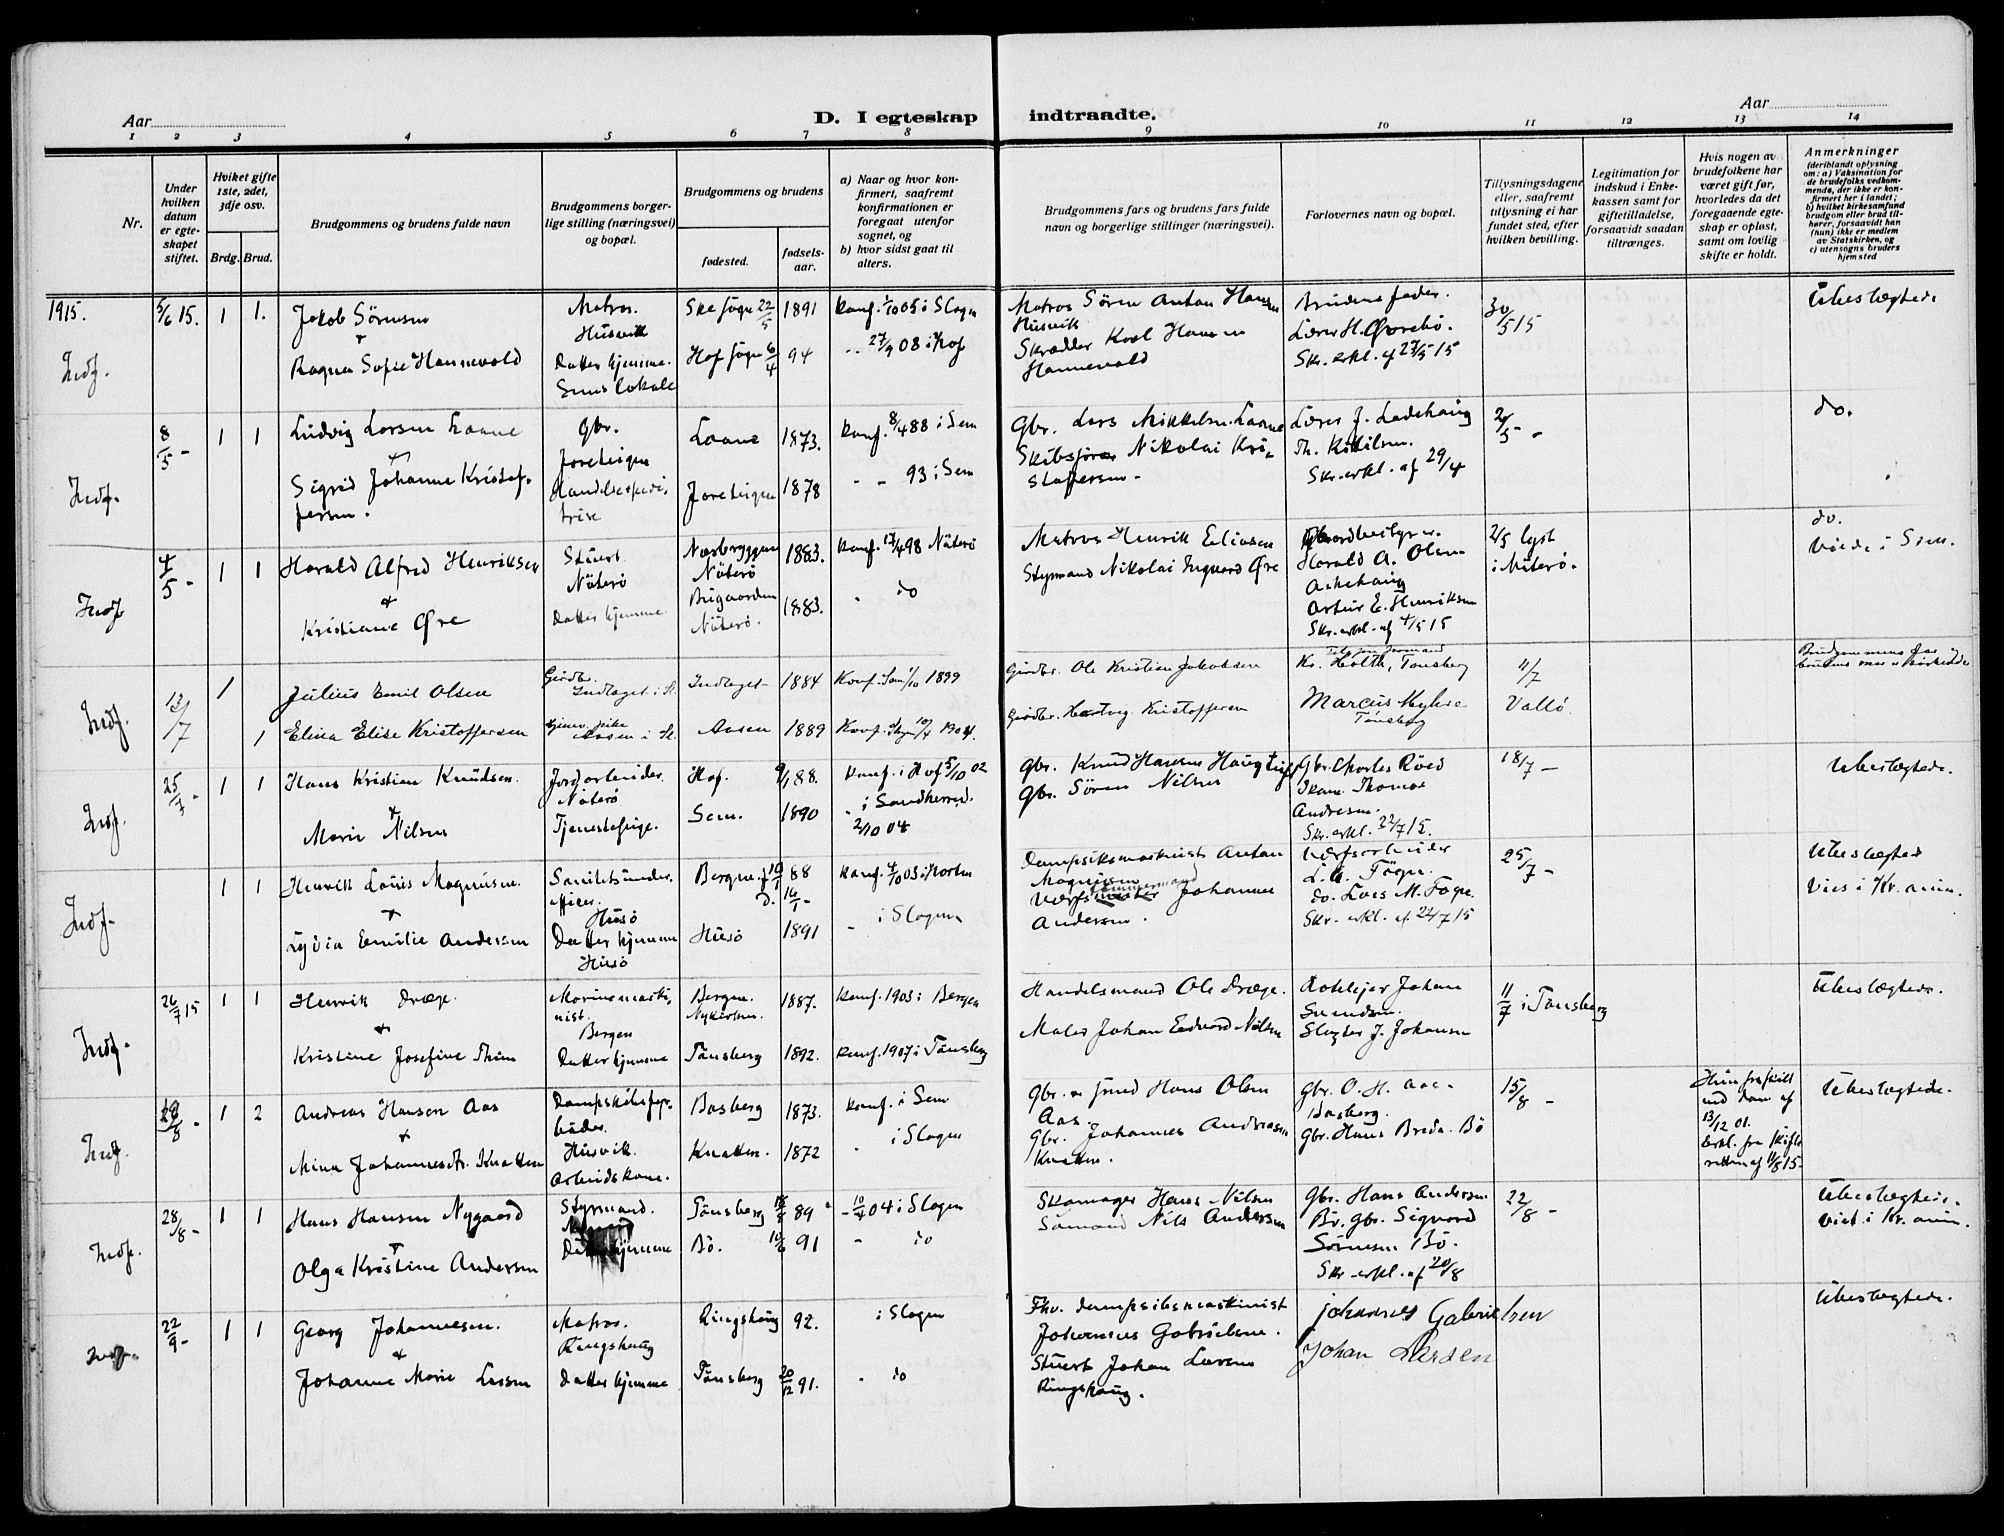 Aar
D. I egteskap indtraadte.
Aar
1 2 3 4 5 6 7 8 9 10 11 12 13 14
Nr.
Under hvilken datum er egteskapet stiftet.
Hviket gifte 1ste, 2det, 3dje osv.
Brdg. Brud.
Brudgommens og brudens fulde navn
Brudgommens borgerlige stilling (næringsvei) og bopæl.
Brudgommens og brudens
fødested.
fødselsaar.
a) Naar og hvor konfirmert, saafremt konfirmationen er foregaat utenfor sognet, og
b) hvor sidst gaat til alters.
Brudgommens fars og brudens fars fulde navn og borgerlige stillinger (næringsvei).
Forlovernes navn og bopæl.
Tillysningsdagene eller, saafremt tillysning ei har fundet sted, efter hvilken bevilling.
Legitimation for indskud i Enkekassen samt for giftetilladelse, forsaavidt saadan tiltrænges.
Hvis nogen av brudefolkene har været gift før, hvorledes da det foregaaende egteskap er opløst, samt om lovlig skifte er holdt.
Anmerkninger
(deriblandt oplysning om: a) Vaksination for de brudefolks vedkommende, der ikke er konfirmert her i landet;
b) hvilket kirkesamfund brudgom eller brud tilhører, forsaavidt han (hun) ikke er medlem av Statskirken, og
c) utensogns bruders hjemsted
1915.
Indf.
5/6 15. 1 1.
Jakob Sörensen
+
Ragna Sofie Hannevold
Matros.
Husvik
Datter hjemme.
Sems lokale
22/5 1891
Hof sogn 6/4 94
Konf. 1/10 05 i Slagn
27/9 08 i Hof
Matros Sören Anton Hansen
Husvik
Skrædder Karl Hansen
Hannevold
Brudens fader.
Lærer H. Øvrebö.
Skr. erkl. af 27/5 15
30/5 15
Ubeslægtede
Indf.
8/5 - 1 1
Ludvig Larsen Laane
+
Sigrid Johanne Kristoffersen.
Gbr.
Handelsexpeditrise
Laane 1873.
1878
Konf. 8/4 88 i Sem
- - 93 i Sem
Gbr. Lars Mikkelsen Laane
Skibsförer Nikolai Kristoffersen -
Lærer J. Ladehaug
Skr. erkl. af 29/4
2/5 -
do.
Indf
4/5 - 1 1
Harald Alfred Henriksen
+
Kristiane Öre
Stuert
Nöterö
Datter hjemme
Nöterö 1883.
Nöterö. 1883.
Konf. 17/4 98 Nöterö
- do
Matros Henrik Eliasen
Styrmand Nikolai Ingvard Öre
Harald A. Olsen
Askehaug
Artur E. Henriksen
Skr. erkl. af 4/5 15
2/5 lyst
i Nöterö.
do.
Viede i Sem.
Indf.
13/7 1
Julius Emil Olsen
1 Elina Elise Kristoffersen
Gårdbr.
Indlaget i Sl.
Aasen i Sl.
Indlaget 1884
Aasen 1889
Konf. Sem 1/10 1899
Konf. Slagn 10/4 1904.
Gårdbr. Ole Kristian Jakobsen
Gårdbr. Hartvig Kristoffersen
Kr. Holth, Tønsberg
Marcus Myhre
Tønsberg
11/7
Vallö
Indf.
25/7 - 1 1
Hans Kristian Knudsen.
+
Marie Nilsen
Jordarbeider.
Nöterö
Tjenestepige.
Hof. 88.
Sem. 1890
Konf. i Hof 5/10 02
- i Sandherred.
2/10 04
Gbr. Knud Hansen
Gbr. Sören Nilsen
Gbr. Charles Röed
Thomas
Andresen.
Skr. erkl. 22/7 15.
18/7 -
Ubeslægtede.
Indf.
1 1
Henrik Louis Magnussen.
+
Lydia Emilie Andersen
Sanitetsunderofficer.
Husö
Datter hjemme
Husö
Bergen 88
Husö 1891
Konf. 4/10 03 i Horten
- i Slagen
Dampskibsmaskinist Anton
Magnussen
Værfstømmermand Johannes
Andersen.
Værfsarbeider
L. A. Fögne.
do. Lars M. Fogne.
Skr. erkl. af 22/7 15
25/7 -
Ubeslægtede
Viet i Kr.ania.
Indf.
26/7 15 1 1
Henrik Dræge.
+
Kristine Josefine Thim
Marinemaskinist.
Bergen
Datter hjemme
Bergen. 1887.
Tönsberg 1892.
Konf. 1903 i Bergen
Konf. 1907 i Tönsberg
Handelsmand Ole Dræge.
Maler Johan Edvard Nilsen
Johan
Svendsen.
Slagter J. Johansen
11/7 i Tönsberg
Ubeslægtede.
Indf.
1 2
Andreas Hansen Aas
+
Mina Johannesdtr. Knatten
Husvik.
Arbeidskone.
Basberg 1873.
Knatten. 1872
Konf. i Sem
- i Slagen
Gbr. Hans Olsen
Aas.
Gbr. Johannes Andreasen
Knatten.
Gbr. O. H. Aas
Basberg.
Gbr. Hans Bredo. Bö
15/8 -
Hun fraskilt
ved dom af
13/12 01.
Erkl. fra Skifteretten af 11/8 15-
Ubeslægtede.
Indf.
28/8 - 1 1
Hans Hansen Nygaard
+
Olga Kristine Andersen
Styrmand.
Datter hjemme
Tönsberg 18/8 89
Bö. 10/6 91
- 10/4 04 i Slagen
- do
Skomager Hans Nilsen
Sömand Nils Andersen
Gbr. Hans Andersen
Bö. Gbr. Sigvard
Sörensen Bö.
Skr-erkl. af 20/8
22/8 -
Ubeslægtede.
viet i Kr.ania.
Indf.
22/9 - 1 1
Georg Johannesen.
+
Johanne Marie Larsen
Matros.
Ringshaug
Datter hjemme
Ringshaug 92.
Tönsberg 20/12 91.
i Slagen
- do
Fhv. dampskibsmaskinist
Johannes Gabrielsen.
Stuert Johan Larsen
Ringshaug.
Johannes Gabrielsen
Johan Larsen
Ubeslægtede.